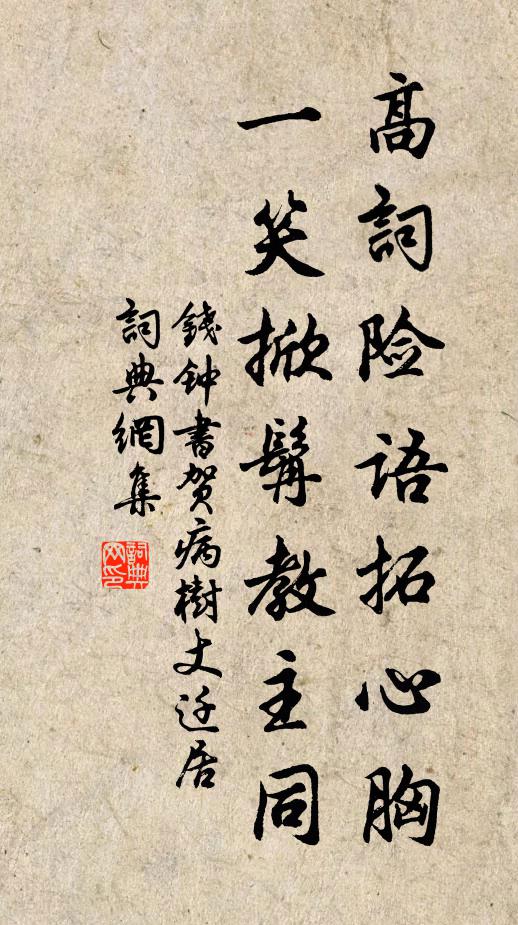 高詞险语拓心胸
一笑掀髯教主同
錢钟書贺病樹丈迁居
詞典網集
詞典网印